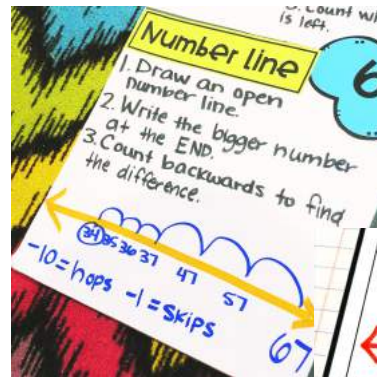 3. Count wh
is left.
Number line
6
1. Draw an open
number line.
2. Write the bigger number
at the END.
3. Count backwards to find
the difference.
34 35 36 37 47 57 67
-10 = hops -1 = skips